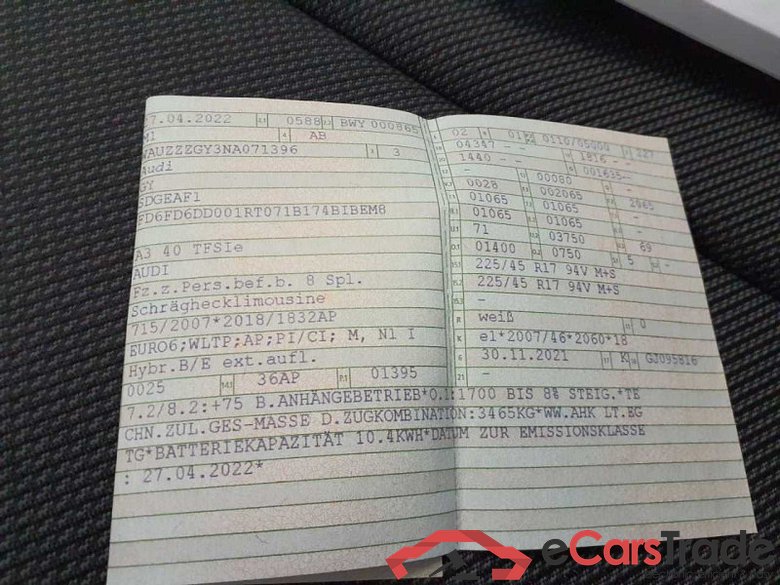 7.04.2022 0588 BWY 000865
M1 4 AB
WAUZZZGY3NA071396 3
Audi
GY
SDGEAF1
FD6FD6DD001RT071B174BIBEM8
A3 40 TFSIe
AUDI
Fz.z.Pers.bef.b. 8 Spl.
Schräghecklimousine
715/2007*2018/1832AP
EURO6;WLTP;AP;PI/CI; M, N1 I
Hybr.B/E ext.aufl.
0025 14.1 36AP P.1 01395
02 01 0110/05000 227
04347 - - 1816 - -
1440 - - 001635-
- 00080 -
0028 002065 -
01065 01065 2065
01065 01065 -
71 03750 -
01400 0750 69
225/45 R17 94V M+S 5 -
225/45 R17 94V M+S
-
R weiß 0
K e1*2007/46*2060*18
6 30.11.2021 K GJ095816
21 -
7.2/8.2:+75 B.ANHÄNGEBETRIEB*O.1:1700 BIS 8% STEIG.*TE
CHN.ZUL.GES-MASSE D.ZUGKOMBINATION:3465KG*WW.AHK LT.EG
TG*BATTERIEKAPAZITÄT 10.4KWH*DATUM ZUR EMISSIONSKLASSE
: 27.04.2022*
eCarsTrade